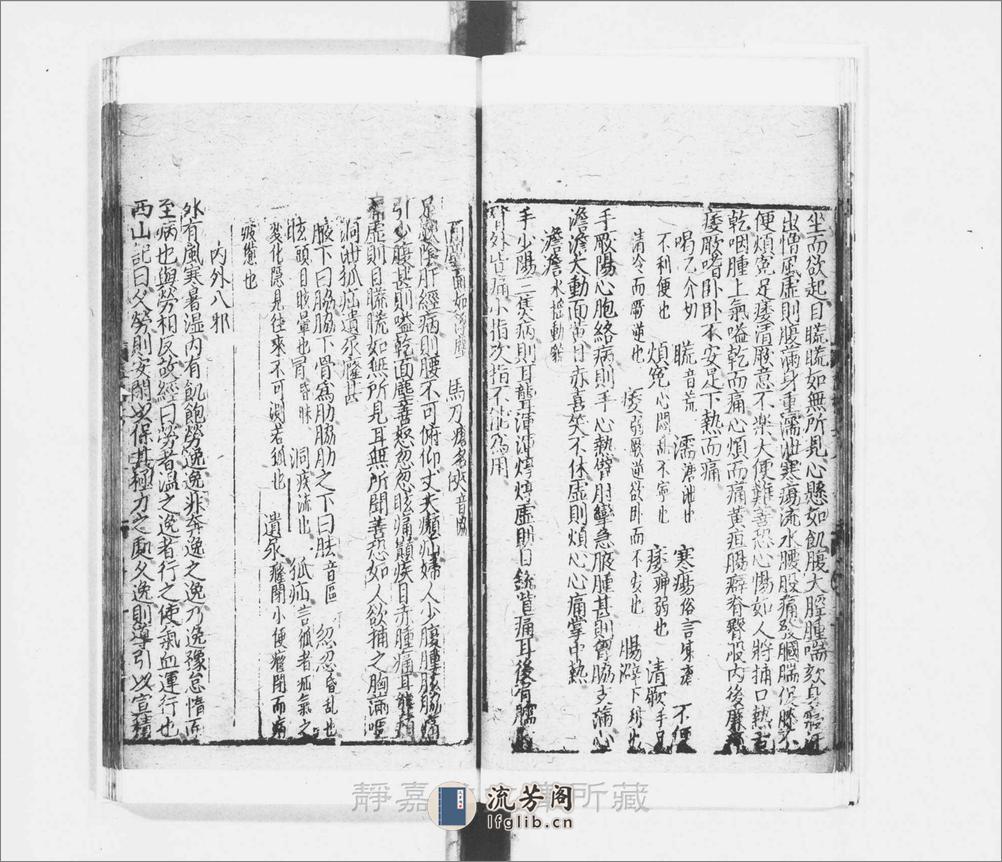 坐而欲起目䀮䀮如無所見心懸如飢腹大脛腫喘欬
出憎風虛則腹滿身重濡泄寒瘍流水腰股痛發膕腨
便煩寃足痿清厥意不樂大便難善恐心惕如人將捕口熱舌
乾咽腫上氣嗌乾而痛心煩而痛黃疸腸癖脊臀股內後廉
痿厥嗜卧卧不安足下熱而痛
喝乙介切 䀮音荒 濡溏泄也 寒瘍俗言凍瘡 不便
不利便也 煩寃心悶亂不寧也 痿軃弱也 清厥手足
清冷而厥逆也 痿弱厥逆欲卧而不安也 腸癖下利也
手厥陽心胞絡病則手心熱臂肘攣急腋腫甚則胸脇支滿心
澹澹大動面黃目赤喜笑不休虛則煩心心痛掌中熱
澹澹水搖動貌
手少陽三焦病則耳聾渾渾焞焞虛則目銳眥痛耳後肩臑
外皆痛小指次指不能為用
馬刀
足厥陰肝經病則腰不可俯仰丈夫㿗疝婦人少腹腫脇痛
引少腹甚則嗌乾面塵善怒忽忽眩痛巔疾目赤腫痛耳聾頰
腫虛則目䀮䀮如無所見耳無所聞善恐如人欲捕之胸滿嘔
洞泄狐疝遺尿
腋下曰脇脇下骨為肋脇肋之下曰胠音區 忽忽昏亂也
眩頭目眩暈也冒昏昧 洞 狐疝言狐者疝氣之
變化隱見往來不可測若狐也 遺尿癃閉小便癃閉而病
也
內外八邪
外有風寒暑濕內有飢飽勞逸逸非奔逸之逸乃逸豫怠惰
至病也與勞相反故經曰勞者溫之逸者行之使氣血運行也
西山記曰久勞則安閑以保其極力之處久逸則導引以宣積
靜嘉 所藏
流芳阁
lfglib.cn